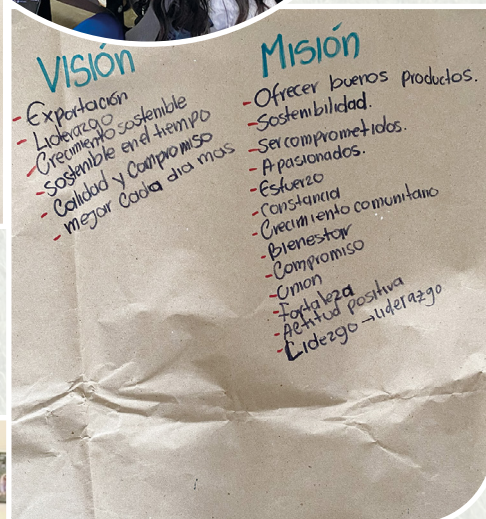 Visión
- Exportación
- Liderazgo
- Crecimiento sostenible
- Sostenible en el tiempo
- Calidad y compromiso
- mejor cada dia mas
Misión
- Ofrecer buenos productos.
- Sostenibilidad.
- Ser comprometidos.
- Apasionados.
- Esfuerzo
- constancia
- Crecimiento comunitario
- Bienestar
- Compromiso
- Union
- Fortaleza
- Actitud positiva
- Lidezgo → liderazgo